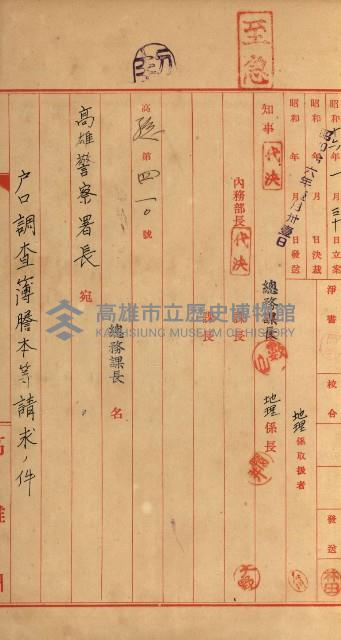 至急
昭和十六年一月三十日立案
昭和 年 月 日決裁
昭和 六年 月卅壹日發送
淨書
校合
發送
地理係取扱者
知事 代決
總務課長
地理係長
內務部長 代決
課長
課長
高 第四一〇號
總務課長名
高雄警察署長 宛
戶口調查簿謄本等請求ノ件
高雄市立歷史博物館
KAOHSIUNG MUSEUM OF HISTORY
高雄州